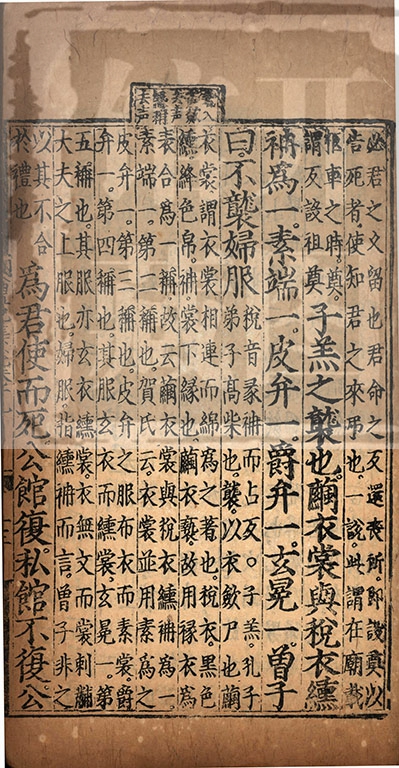 必君之久留也君命之反還喪所即設奠以
告死者使知君之來弔也一說此謂在廟載
柩車之時奠
謂反設祖奠
子羔之襲也繭衣裳與稅衣纁
袡為一素端一皮弁一爵弁一玄冕一曾子
曰不襲婦服
稅音彖袡而占反○子羔孔子
弟子高柴也襲以衣斂尸也繭
衣裳謂衣裳相連而綿為之著也稅衣黑色
纁絳色帛袡裳下緣也繭衣褻故用緣衣為
表合為一稱故云繭衣裳與稅衣纁袡為一
素端一第二稱也賀氏云衣裳並用素為之
皮弁一第三稱也皮弁之服布衣而素裳爵
弁一第四稱也其服玄衣而纁裳玄冕一第
五稱也其服亦玄衣纁裳衣無文而裳刺黼
大夫之上服也婦服指纁袡而言曾子非之
以其不合
於禮也
為君使而死公館復私館不復公